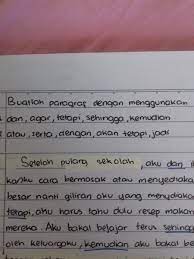 Buatlah paragraf dengan menggunakan
dan, agar, tetapi, sehingga, kemudian
atau, serta, dengan, akan tetapi, jadi
Setelah pulang sekolah, aku dan
cara bermasak atau menyediaka
besar nanti giliran aku yang menyediaka
tetapi, aku harus tahu dulu resep makan
mereka. Aku bakal belajar terus sehingg
oleh keluargaku, kemudian aku bakal be